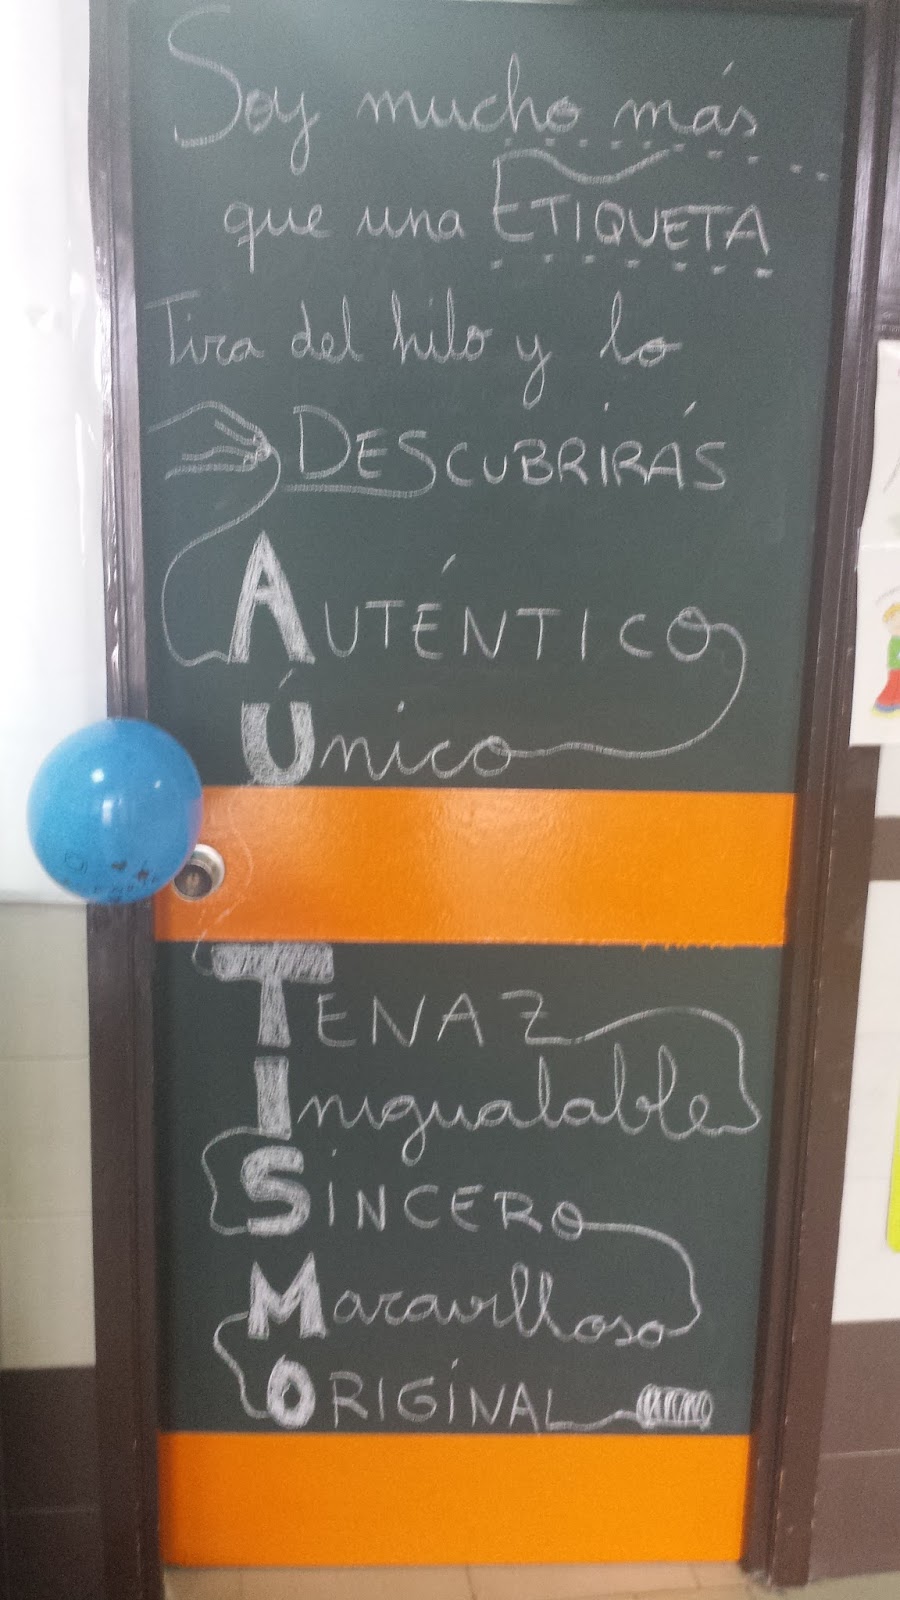 Soy mucho más
que una ETIQUETA
Tira del hilo y lo
DESCUBRIRÁS
AUTÉNTICO
Único
TENAZ
Inigualable
SINCERO
Maravilloso
ORIGINAL